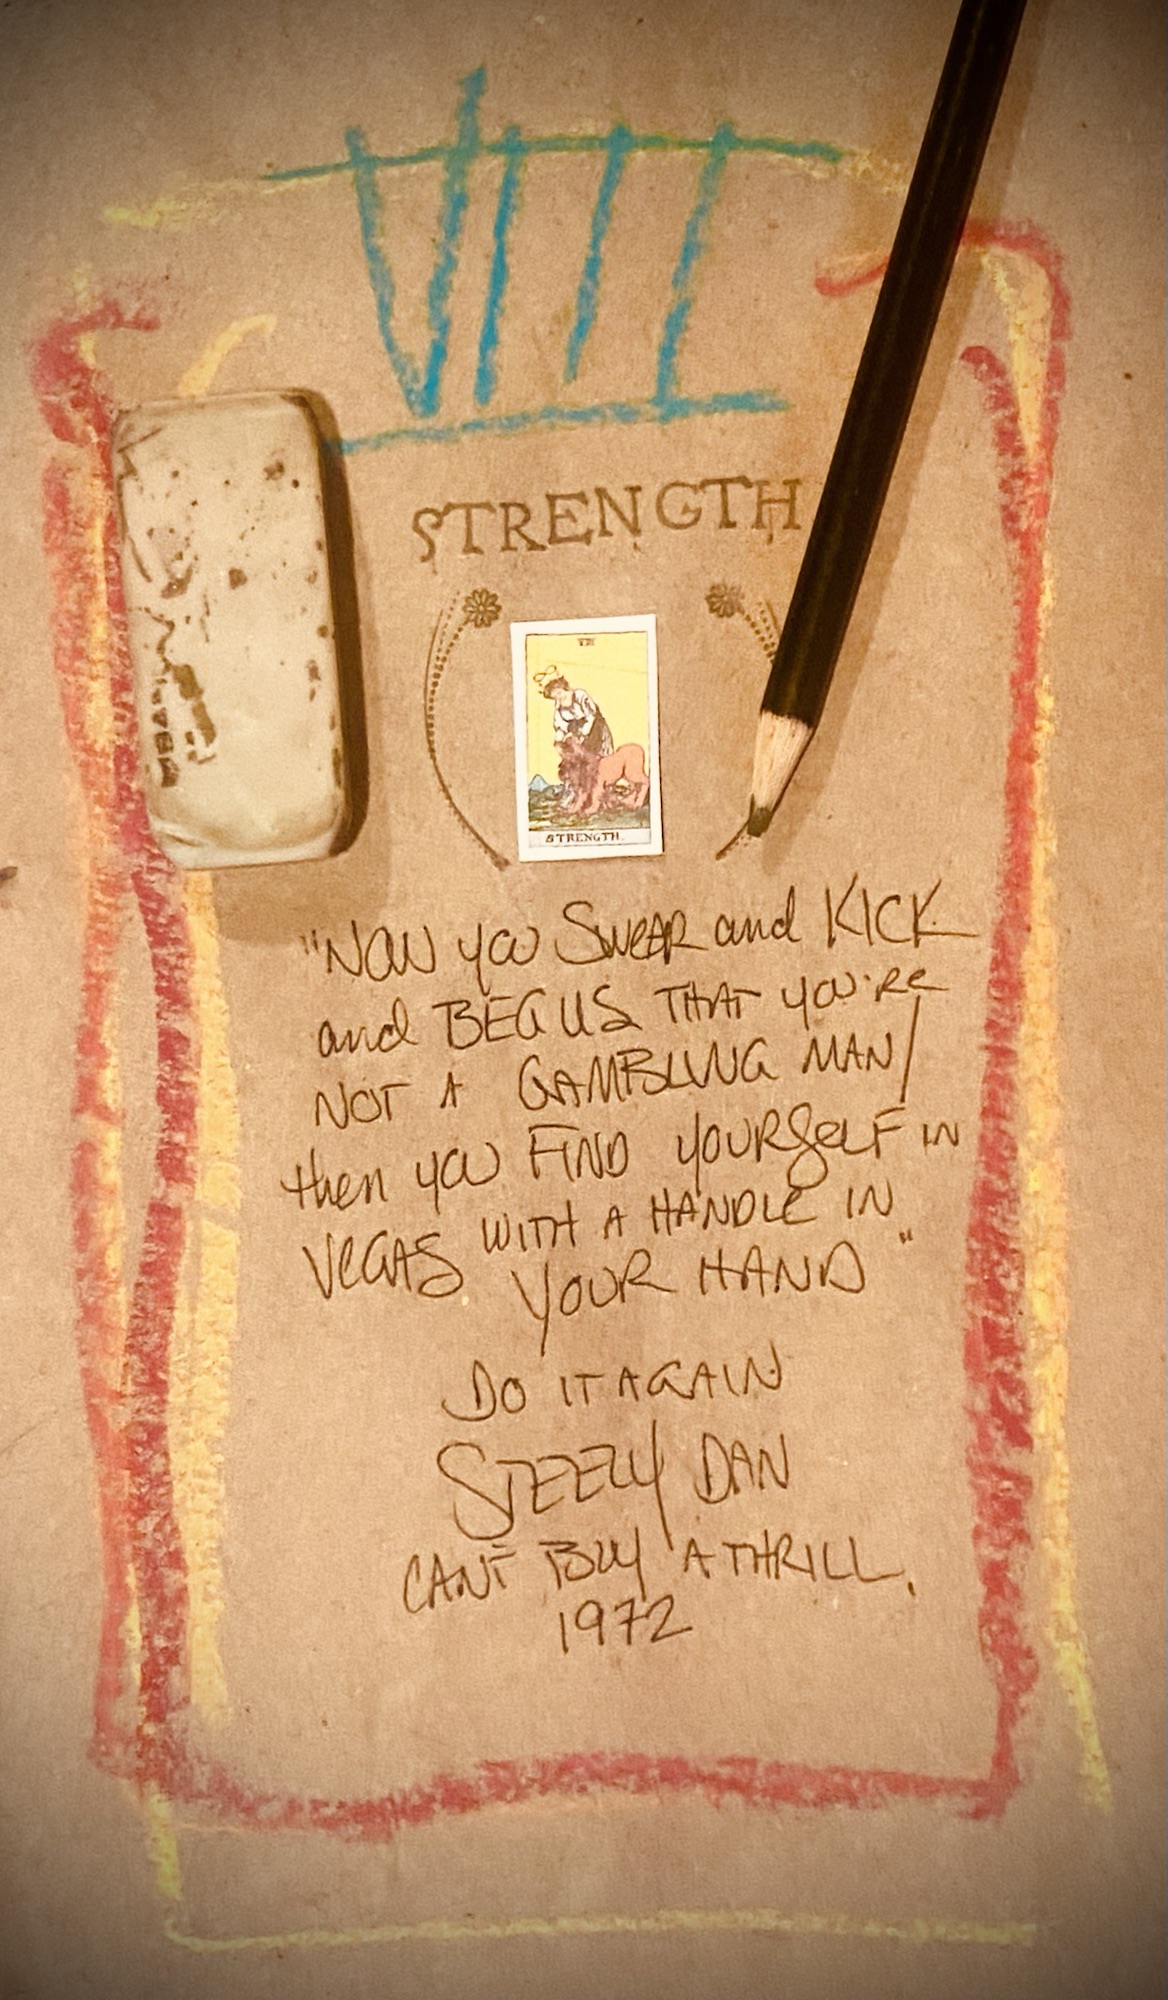 VIII
STRENGTH
VIII
STRENGTH.
"NOW YOU SWEAR and KICK
and BEG US THAT YOU'RE
NOT A GAMBLING MAN/
then you FIND YOURSELF IN
VEGAS WITH A HANDLE IN
YOUR HAND"
DO IT AGAIN
STEELY DAN
CAN'T BUY A THRILL.
1972